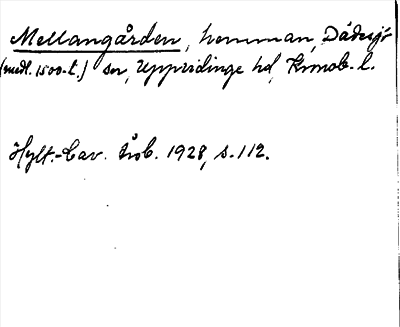 Mellangården, hemman, Dädesjö
(medl. 1500-t.) sn, Uppvidinge hd, Kronob. l.
Hylt.-Cav. Årsb. 1928, s. 112.